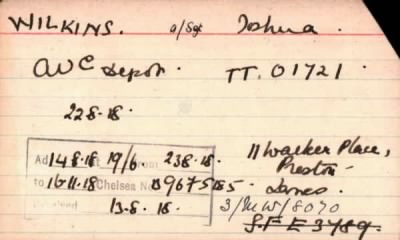 WILKINS. a/Sgt Joshua.
AVC Depot. TT. 01721.
22.8.18.
Ad 14.8.18 19/6. from 23.8.18. 11 Walker Place,
Preston
to 16.11.18 Chelsea No Lancs.
13.8.18. 3/MW/8070
S.F E 3789.